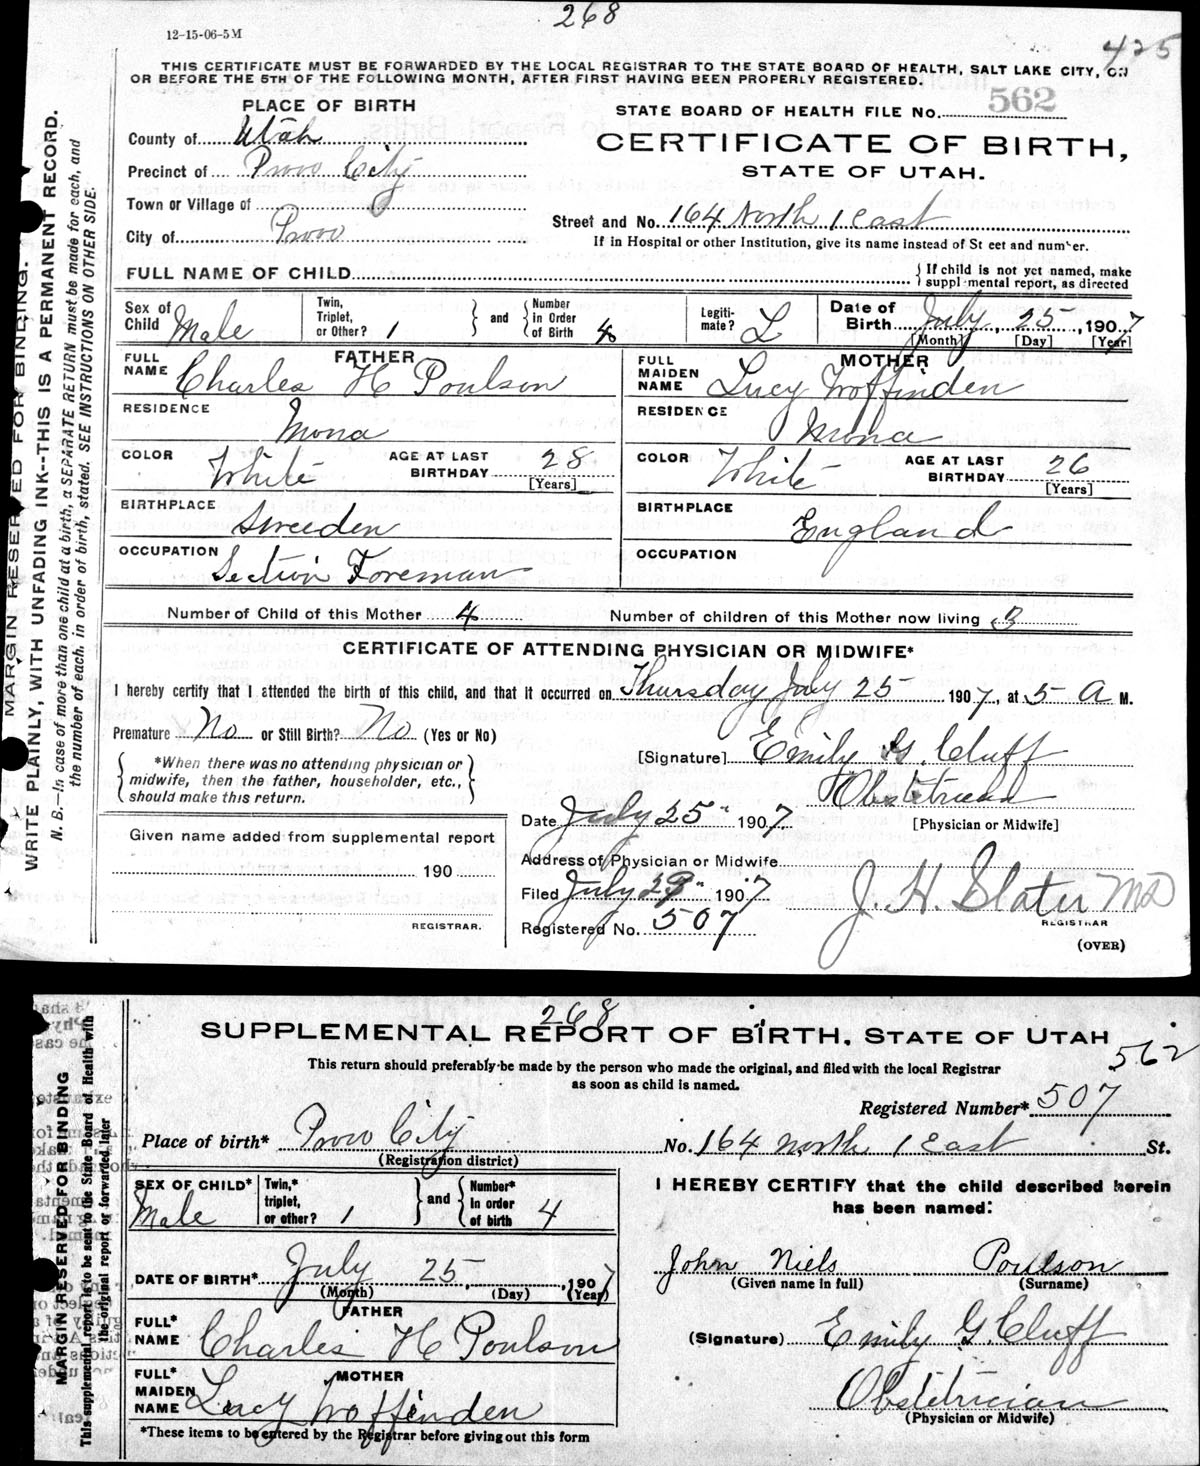 268
12-15-06-5M
425
THIS CERTIFICATE MUST BE FORWARDED BY THE LOCAL REGISTRAR TO THE STATE BOARD OF HEALTH, SALT LAKE CITY, ON
OR BEFORE THE 5TH OF THE FOLLOWING MONTH, AFTER FIRST HAVING BEEN PROPERLY REGISTERED.
PLACE OF BIRTH
STATE BOARD OF HEALTH FILE No. 562
County of Utah
CERTIFICATE OF BIRTH,
Precinct of Provo City
STATE OF UTAH.
Town or Village of
Street and No. 164 North 1 East
City of Provo
If in Hospital or other Institution, give its name instead of St eet and number.
FULL NAME OF CHILD
If child is not yet named, make
suppl-mental report, as directed
Sex of Child Male
Twin, Triplet, or Other? 1
and
Number in Order of Birth 4
Legitimate? L
Date of Birth July 25, 1907
[Month] [Day] [Year]
FATHER
FULL NAME Charles H Poulson
MOTHER
FULL MAIDEN NAME Lucy Woffinden
RESIDENCE Mona
RESIDENCE Mona
COLOR White AGE AT LAST BIRTHDAY 28 [Years]
COLOR White AGE AT LAST BIRTHDAY 26 [Years]
BIRTHPLACE Sweeden
BIRTHPLACE England
OCCUPATION Section Foreman
OCCUPATION
Number of Child of this Mother 4
Number of children of this Mother now living 3
CERTIFICATE OF ATTENDING PHYSICIAN OR MIDWIFE*
I hereby certify that I attended the birth of this child, and that it occurred on Thursday July 25 1907, at 5 A M.
Premature No or Still Birth? No (Yes or No)
[Signature] Emily G. Cluff
*When there was no attending physician or
midwife, then the father, householder, etc.,
should make this return.
Obstetrician
[Physician or Midwife]
Date July 25" 1907
Given name added from supplemental report
190
Address of Physician or Midwife
Filed July 29" 1907
J. H. Slater MD
REGISTRAR
REGISTRAR.
Registered No. 507
(OVER)
MARGIN RESERVED FOR BINDING.
WRITE PLAINLY, WITH UNFADING INK--THIS IS A PERMANENT RECORD.
N. B.—In case of more than one child at a birth, a SEPARATE RETURN must be made for each, and
the number of each, in order of birth, stated. SEE INSTRUCTIONS ON OTHER SIDE.
268
SUPPLEMENTAL REPORT OF BIRTH, STATE OF UTAH
562
This return should preferably be made by the person who made the original, and filed with the local Registrar
as soon as child is named.
Registered Number* 507
Place of birth* Provo City No. 164 North 1 East St.
(Registration district)
SEX OF CHILD* Male
Twin,* triplet, or other? 1
and
Number* in order of birth 4
I HEREBY CERTIFY that the child described herein
has been named:
DATE OF BIRTH* July 25, 1907
(Month) (Day) (Year)
John Niels Poulson
(Given name in full) (Surname)
FATHER
FULL* NAME Charles H Poulson
(Signature) Emily G. Cluff
MOTHER
FULL* MAIDEN NAME Lucy Woffinden
Obstetrician
(Physician or Midwife)
*These items to be entered by the Registrar before giving out this form
MARGIN RESERVED FOR BINDING
This supplemental report is to be sent to the State Board of Health with
the original report or forwarded later